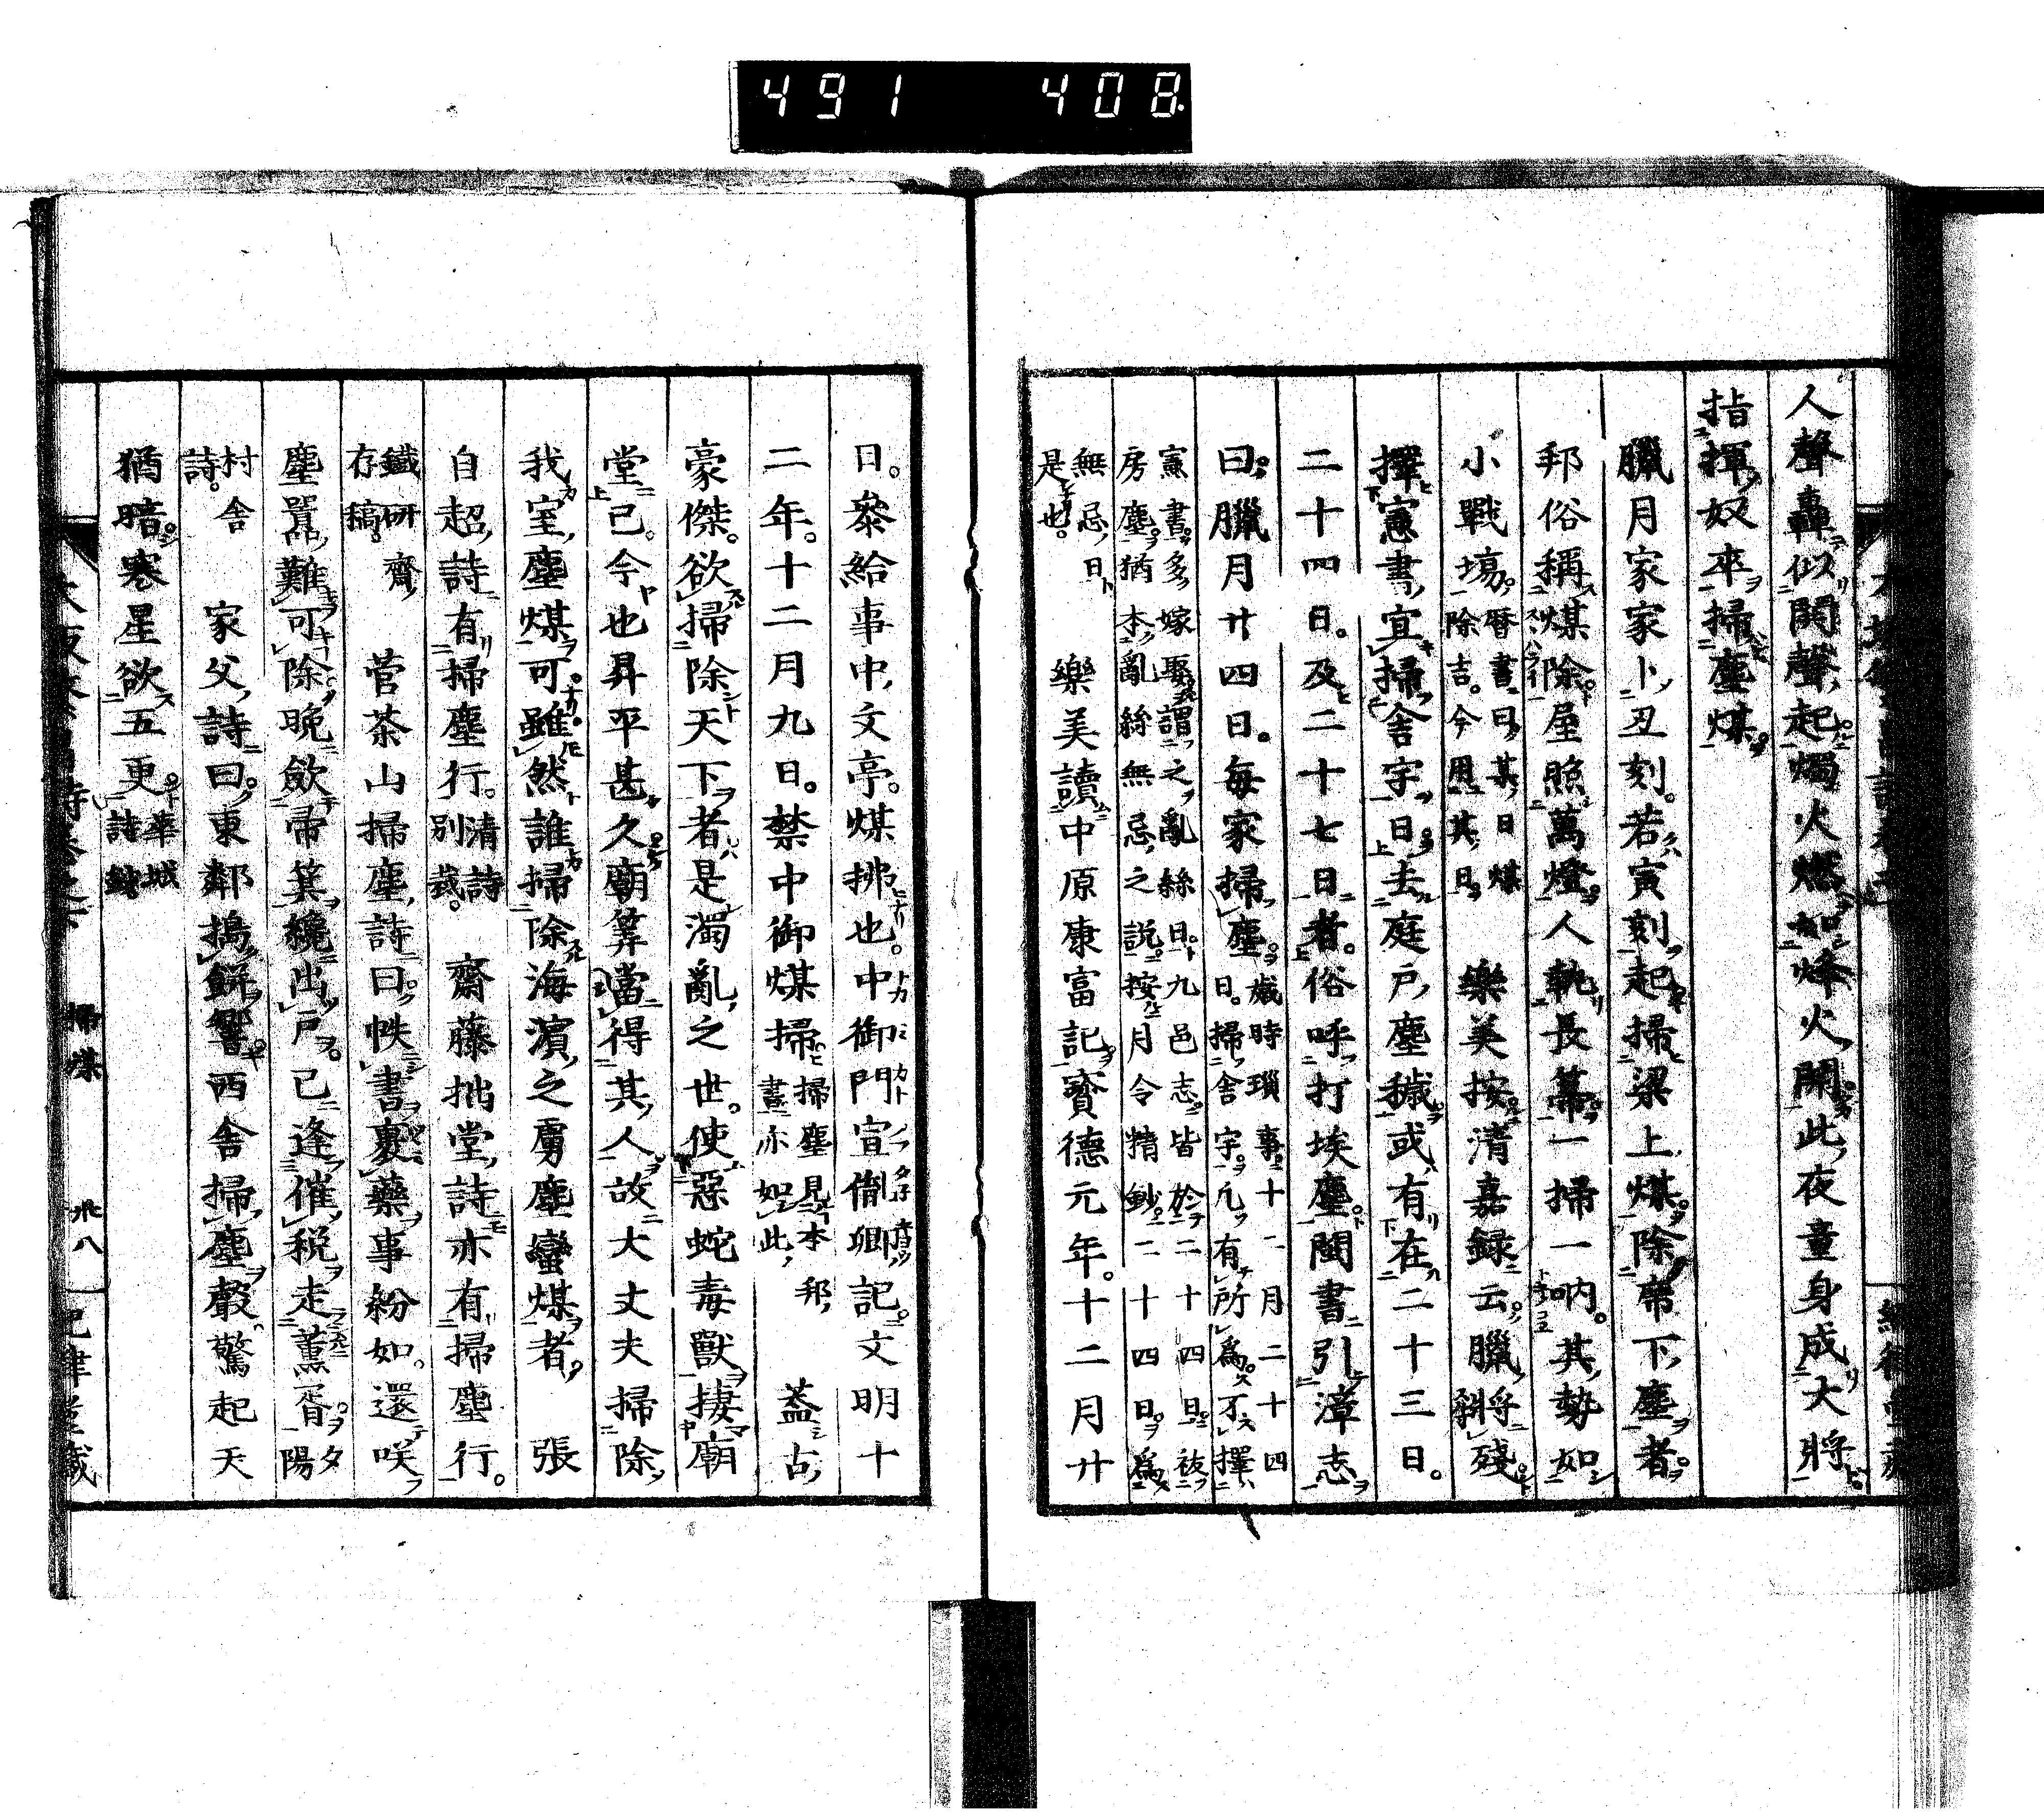 491 408
人聲轟似鬨聲起燭火燃如烽火鬨此夜童身成大將
指揮奴卒掃塵煤
臘月家家卜丑刻若寅刻起掃梁上煤除席下塵者
邦俗稱煤除屋照萬燈人執長箒一掃一吶其勢如
小戰塲暦書曰某日煤除吉今用其日 樂美按清嘉録云臘將殘
擇憲書宜掃舍宇日去庭戸塵穢或有在二十三日
二十四日及二十七日者俗呼打埃塵閩書引漳志
曰臘月廿四日毎家掃塵歳時瑣事十二月二十四日掃舍宇凡有所爲不擇
憲書多嫁娶謂之亂絲日九邑志皆於二十四日祓
房塵猶本亂絲無忌之説按月令精鈔二十四日爲
無忌日是也 樂美讀中原康富記寳德元年十二月廿
日參給事中文亭煤拂也中御門宣胤卿記文明十
二年十二月九日禁中御煤掃掃塵見本邦書亦如此 蓋古
豪傑欲掃除天下者是濁亂之世使惡蛇毒獸捿廟
堂已今也昇平甚久廟筭當得其人故大丈夫掃除
我室塵煤可雖然誰掃除海濱之虜塵蠻煤者 張
自超詩有掃塵行清詩別裁 齋藤拙堂詩亦有掃塵行
鐵研齋存稿 菅茶山掃塵詩曰帙書裹藥事紛如還咲
塵囂難可除晩斂帚箕纔出戸已逢催税走薫胥夕陽
村舍詩 家父詩曰東鄰搗餅響西舍掃塵聲驚起天
猶暗寒星欲五更華城詩鈔
掃煤
八